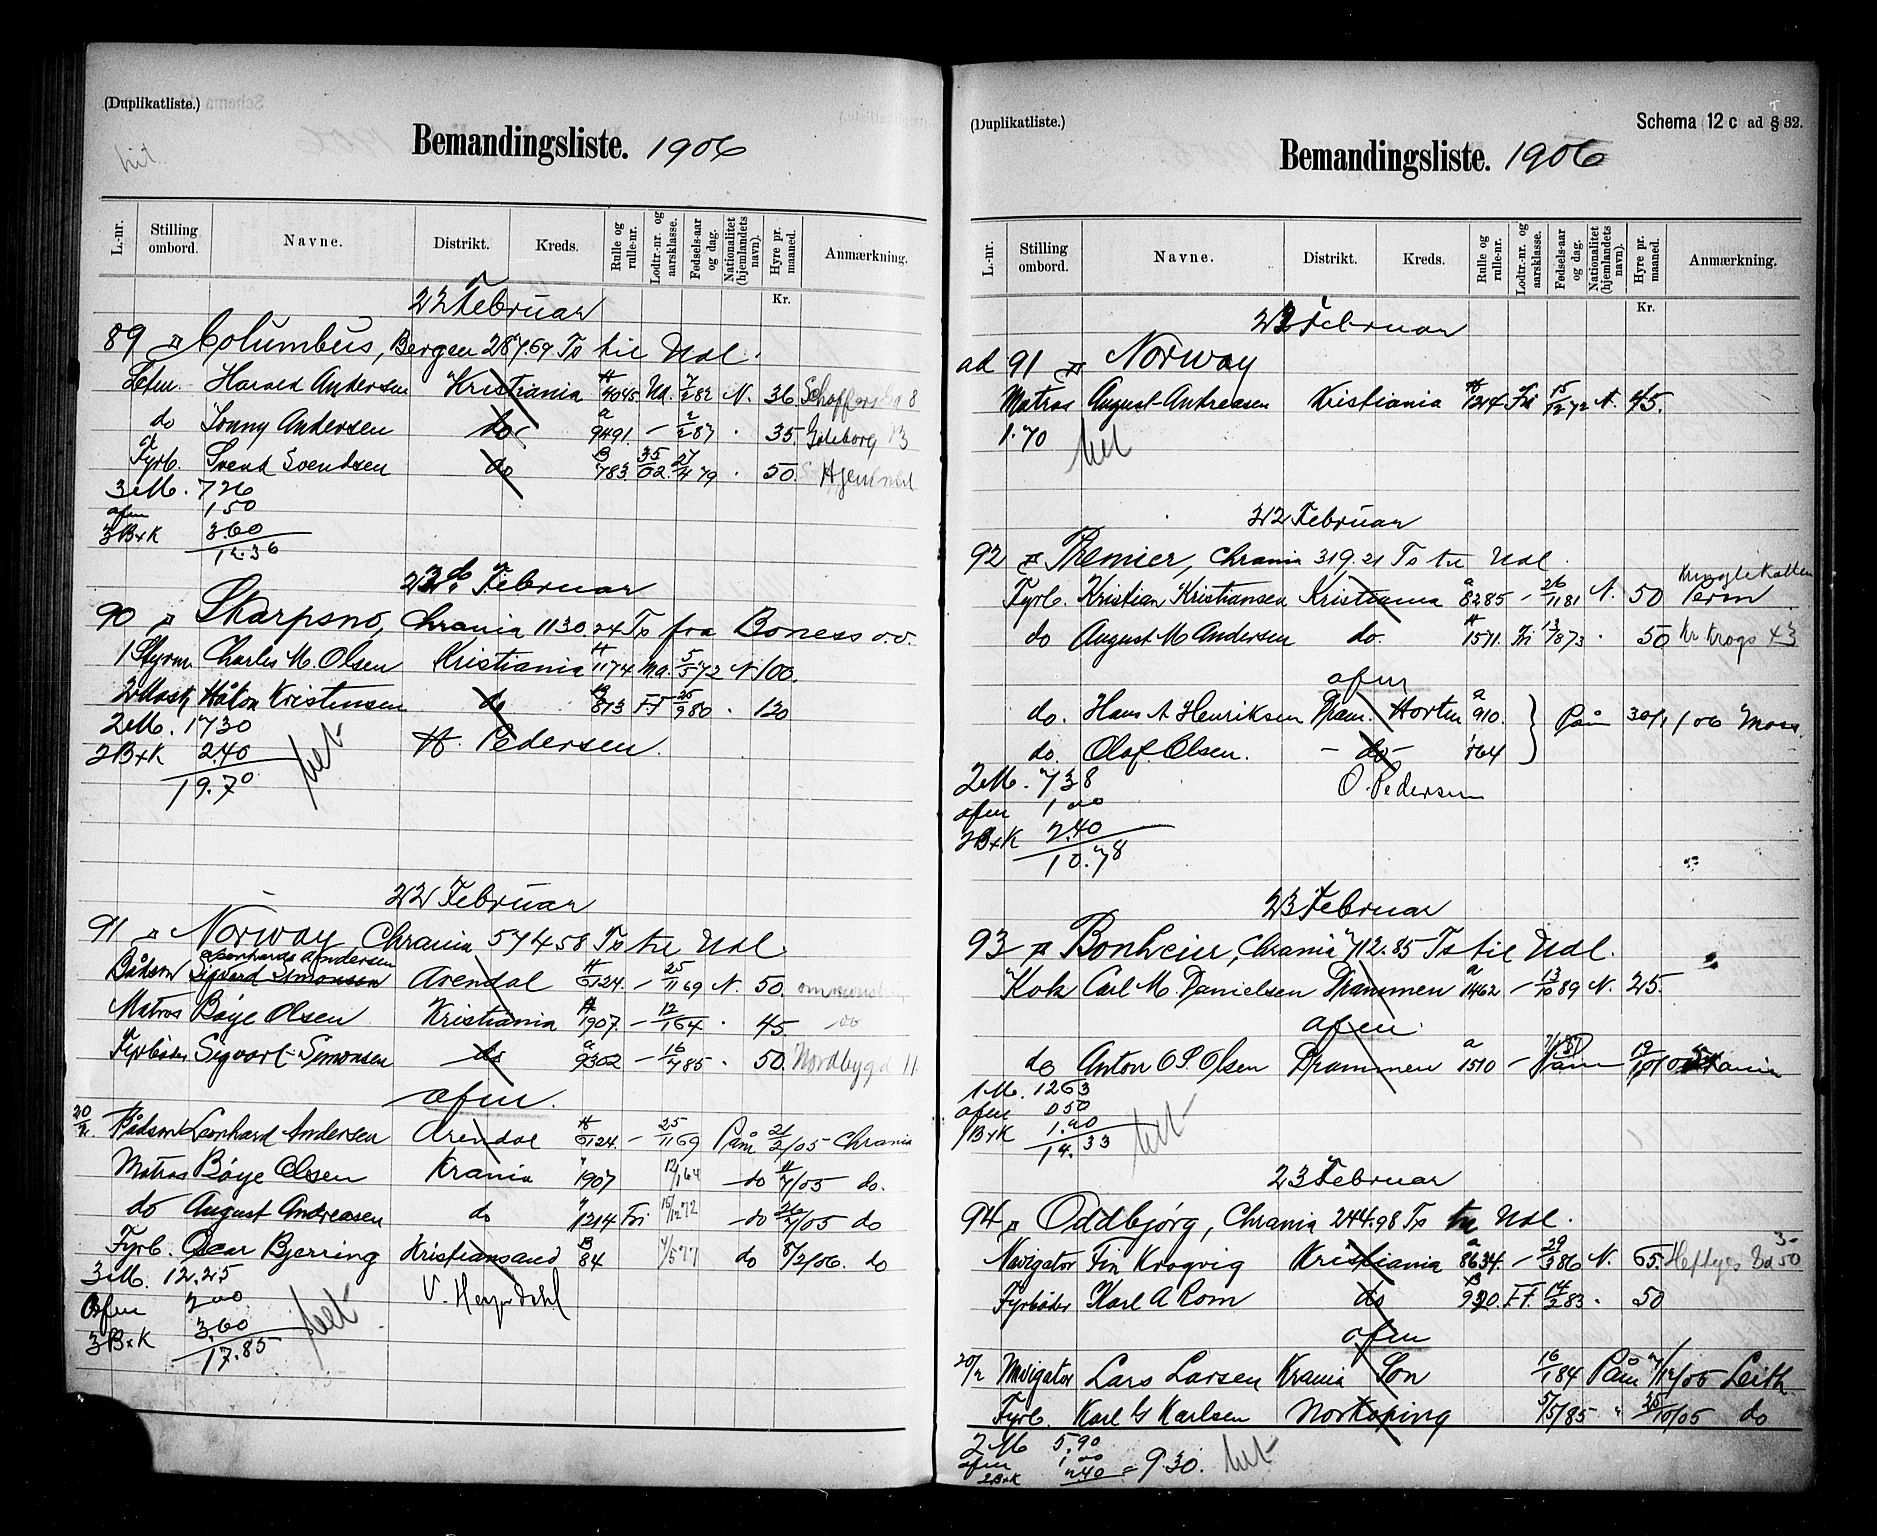 (Duplikatliste.)
Bemandingsliste. 1906
L.-nr. Stilling ombord. Navne. Distrikt. Kreds. Rulle og rulle-nr. Lodtr.-nr. og aarsklasse. Fødsels-aar og dag. Nationalitet (hjemlandets navn). Hyre pr. maaned. Anmærkning.
Kr.
22 Februar
89 Columbus, Bergen 287.69 Ts til Udl.
Harald Andersen Kristiania 4045 7/2 82 N. 36.
do Sonny Andersen do a 9491 – 2/2 87 35. Göteborg
Fyrb. Svend Svendsen do B 783 35/02 27/4 79 50.
3 M. 7 26
afm 1 50
3 B+K 3.60
12.36
Februar
90 Skarpsno, Chrania 1130.24 Ts fra Boness o.v.
1 Styrm Charles M. Olsen Kristiania 1174 5/5 72 N 100.
Håkon Kristensen do 813 FF 25/9 80 120
2 M. 17 30
2 B+K 2.40
19.70
Pedersen.
22 Februar
91 Norway, Chrania 574.58 Ts til Udl.
Leonhard Andersen
Bådsm Sigvard Simonsen Arendal 6124. – 25/11 69 N. 50.
Matros Böye Olsen Kristiania 1907. – 12/1 64 45. do
Fyrböder Sigvart Simonsen do a 9302 – 16/4 85 50. Nordbygd 11
afm.
20/2 Bådsm Leonhard Andersen Arendal 6124. – 25/11 69 Påm 21/2/05 Chrania
Matros Böye Olsen Krania 1907 12/1 64 do /05 do.
do August Andreasen do 1214 Fri 15/12 72 do /05 do
Fyrb. Oscar Bjerring Kristiansand B 84 /5 77 do 8/2/06. do
3 M. 12.25
Afm 2 00
3 B+K 3.60
17.85
(Duplikatliste.)
Schema 12 c ad § 32.
Bemandingsliste. 1906
L.-nr. Stilling ombord. Navne. Distrikt. Kreds. Rulle og rulle-nr. Lodtr.-nr. og aarsklasse. Fødsels-aar og dag. Nationalitet (hjemlandets navn). Hyre pr. maaned. Anmærkning.
Kr.
Februar
ad 91 Norway
Matros August Andreasen Kristiania 1214 Fri 15/12 72 N. 45.
1.70
22 Februar
92 Premier, Chrania 319.21 Ts til Udl.
Fyrb. Kristian Kristiansen Kristiania a 8285 – 26/11 81 N. 50
do August M Andersen do. 1571. Fri 13/8 73 50 Kr Krogs 43
afm
do. Hans A Henriksen Dram. Horten a 910. } Påm 30/1/06 Moss.
do. Olaf Olsen. – do – 764
2 M. 7 38
O. Pedersen
afm 1 00
2 B+K 2.40
10.78
23 Februar
93 Bonheur, Chrania 712.85 Ts til Udl.
Kok Carl M. Danielsen Drammen a 1462 – 13/10 89 N. 25.
afm.
do Anton O P. Olsen Drammen a 1510 –
1 M. 12 63
afm 0 50
1 B+K 1.20
14.33
23 Februar
94 Oddbjörg, Chrania 244.98 Ts til Udl.
Navigator Fin Krogvig Kristiania a 8634. – 29/3 86 N. 65.
Fyrböder Karl A Rom do B 920. FF. 14/2 83 50
afm
20/2 Navigator Lars Larsen Krania Son 16/1 84 Påm /12/05 Leith
Fyrb. Karl G Karlsen Norkoping 5/5/85 " 25/10/05 do
2 M 5.90
afm 1 00
2 B+K 2.40 = 9.30.